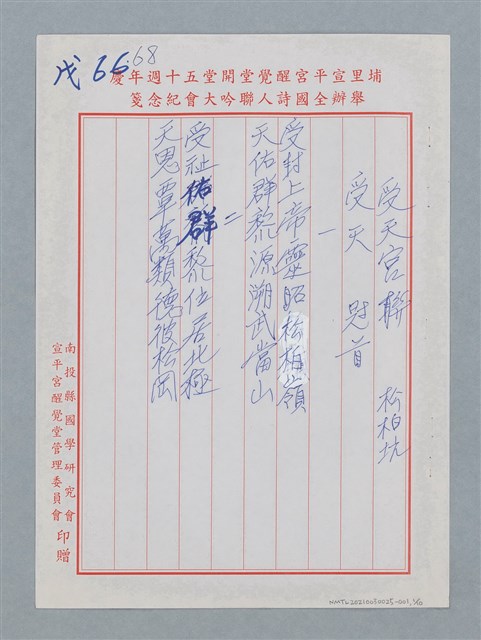 戊 66.68
埔里宣平宮醒覺堂開堂五十週年慶
舉辦全國詩人聯吟大會紀念箋
受天宮聯 松柏坑
受天 冠首
一
受封上帝靈昭松柏嶺
天佑群黎源溯武當山
二
受祉祐群黎位居北極
天恩覃萬類德彼松岡
南投縣國學研究會
宣平宮醒覺堂管理委員會
印贈
NMTL20210030025-001,